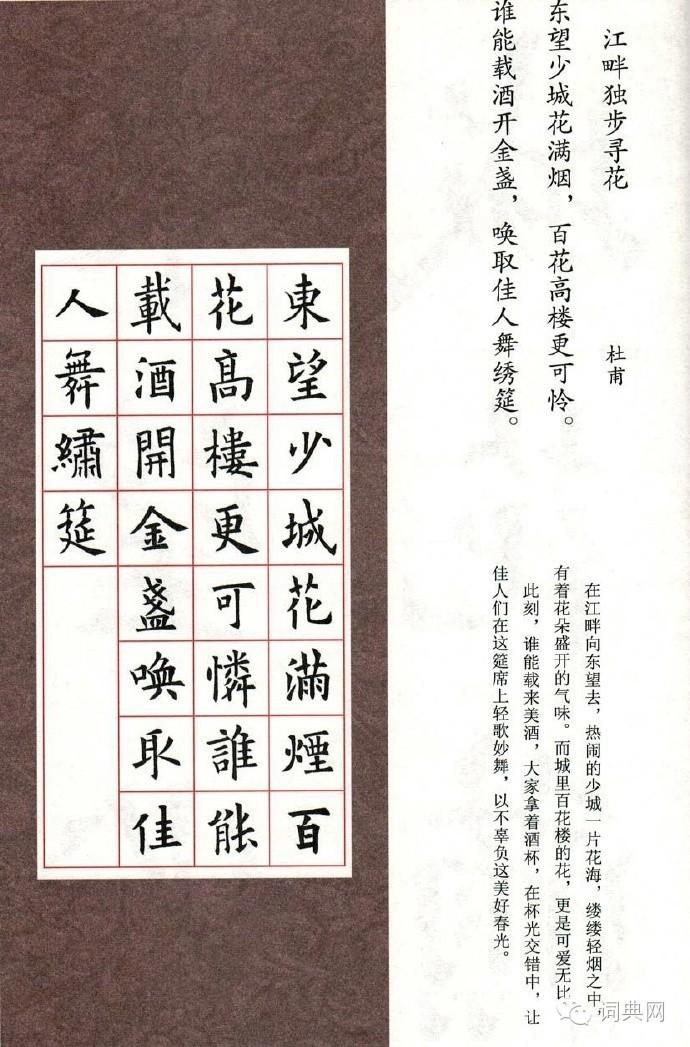 江畔独步寻花
杜甫
东望少城花满烟，百花高楼更可怜。
谁能载酒开金盏，唤取佳人舞绣筵。
在江畔向东望去，热闹的少城一片花海，缕缕轻烟之中，
有着花朵盛开的气味。而城里百花楼的花，更是可爱无比
此刻，谁能载来美酒，大家拿着酒杯，在杯光交错中，让
佳人们在这筵席上轻歌妙舞，以不辜负这美好春光。
東望少城花滿煙百
花高樓更可憐誰能
載酒開金盞喚取佳
人舞繡筵
词典网